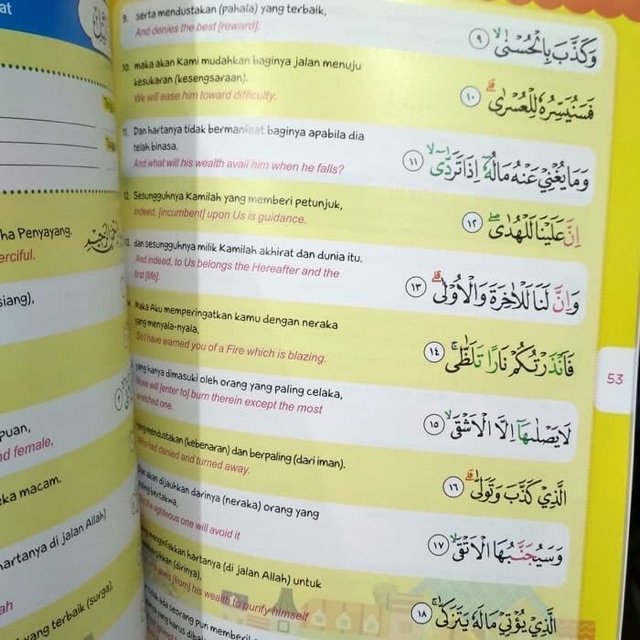 at
ha Penyayang.
erciful.
siang),
puan,
nd female,
eka macam.
hartanya di jalan Allah)
ah
yang terbaik (surga).
9. serta mendustakan (pahala) yang terbaik,
And denies the best [reward],
وَكَذَّبَ بِالْحُسْنٰىۙ ٩
10. maka akan Kami mudahkan baginya jalan menuju
kesukaran (kesengsaraan).
We will ease him toward difficulty.
فَسَنُيَسِّرُهٗ لِلْعُسْرٰىۗ ١٠
11. Dan hartanya tidak bermanfaat baginya apabila dia
telah binasa.
And what will his wealth avail him when he falls?
وَمَا يُغْنِيْ عَنْهُ مَالُهٗٓ اِذَا تَرَدّٰىٓۙ ١١
12. Sesungguhnya Kamilah yang memberi petunjuk,
Indeed, [incumbent] upon Us is guidance.
اِنَّ عَلَيْنَا لَلْهُدٰىۖ ١٢
13. dan sesungguhnya milik Kamilah akhirat dan dunia itu.
And indeed, to Us belongs the Hereafter and the
first [life].
وَاِنَّ لَنَا لَلْاٰخِرَةَ وَالْاُوْلٰىۗ ١٣
Maka Aku memperingatkan kamu dengan neraka
yang menyala-nyala,
So I have warned you of a Fire which is blazing.
فَاَنْذَرْتُكُمْ نَارًا تَلَظّٰىۚ ١٤
53
yang hanya dimasuki oleh orang yang paling celaka,
None will [enter to] burn therein except the most
wretched one.
لَا يَصْلٰىهَآ اِلَّا الْاَشْقَىۙ ١٥
yang mendustakan (kebenaran) dan berpaling (dari iman).
Who had denied and turned away.
الَّذِيْ كَذَّبَ وَتَوَلّٰىۗ ١٦
akan dijauhkan darinya (neraka) orang yang
bertakwa,
the righteous one will avoid it
وَسَيُجَنَّبُهَا الْاَتْقَىۙ ١٧
menginfakkan hartanya (di jalan Allah) untuk
(dirinya),
gives [from] his wealth to purify himself
الَّذِيْ يُؤْتِيْ مَالَهٗ يَتَزَكّٰىۚ ١٨
ada seorang pun